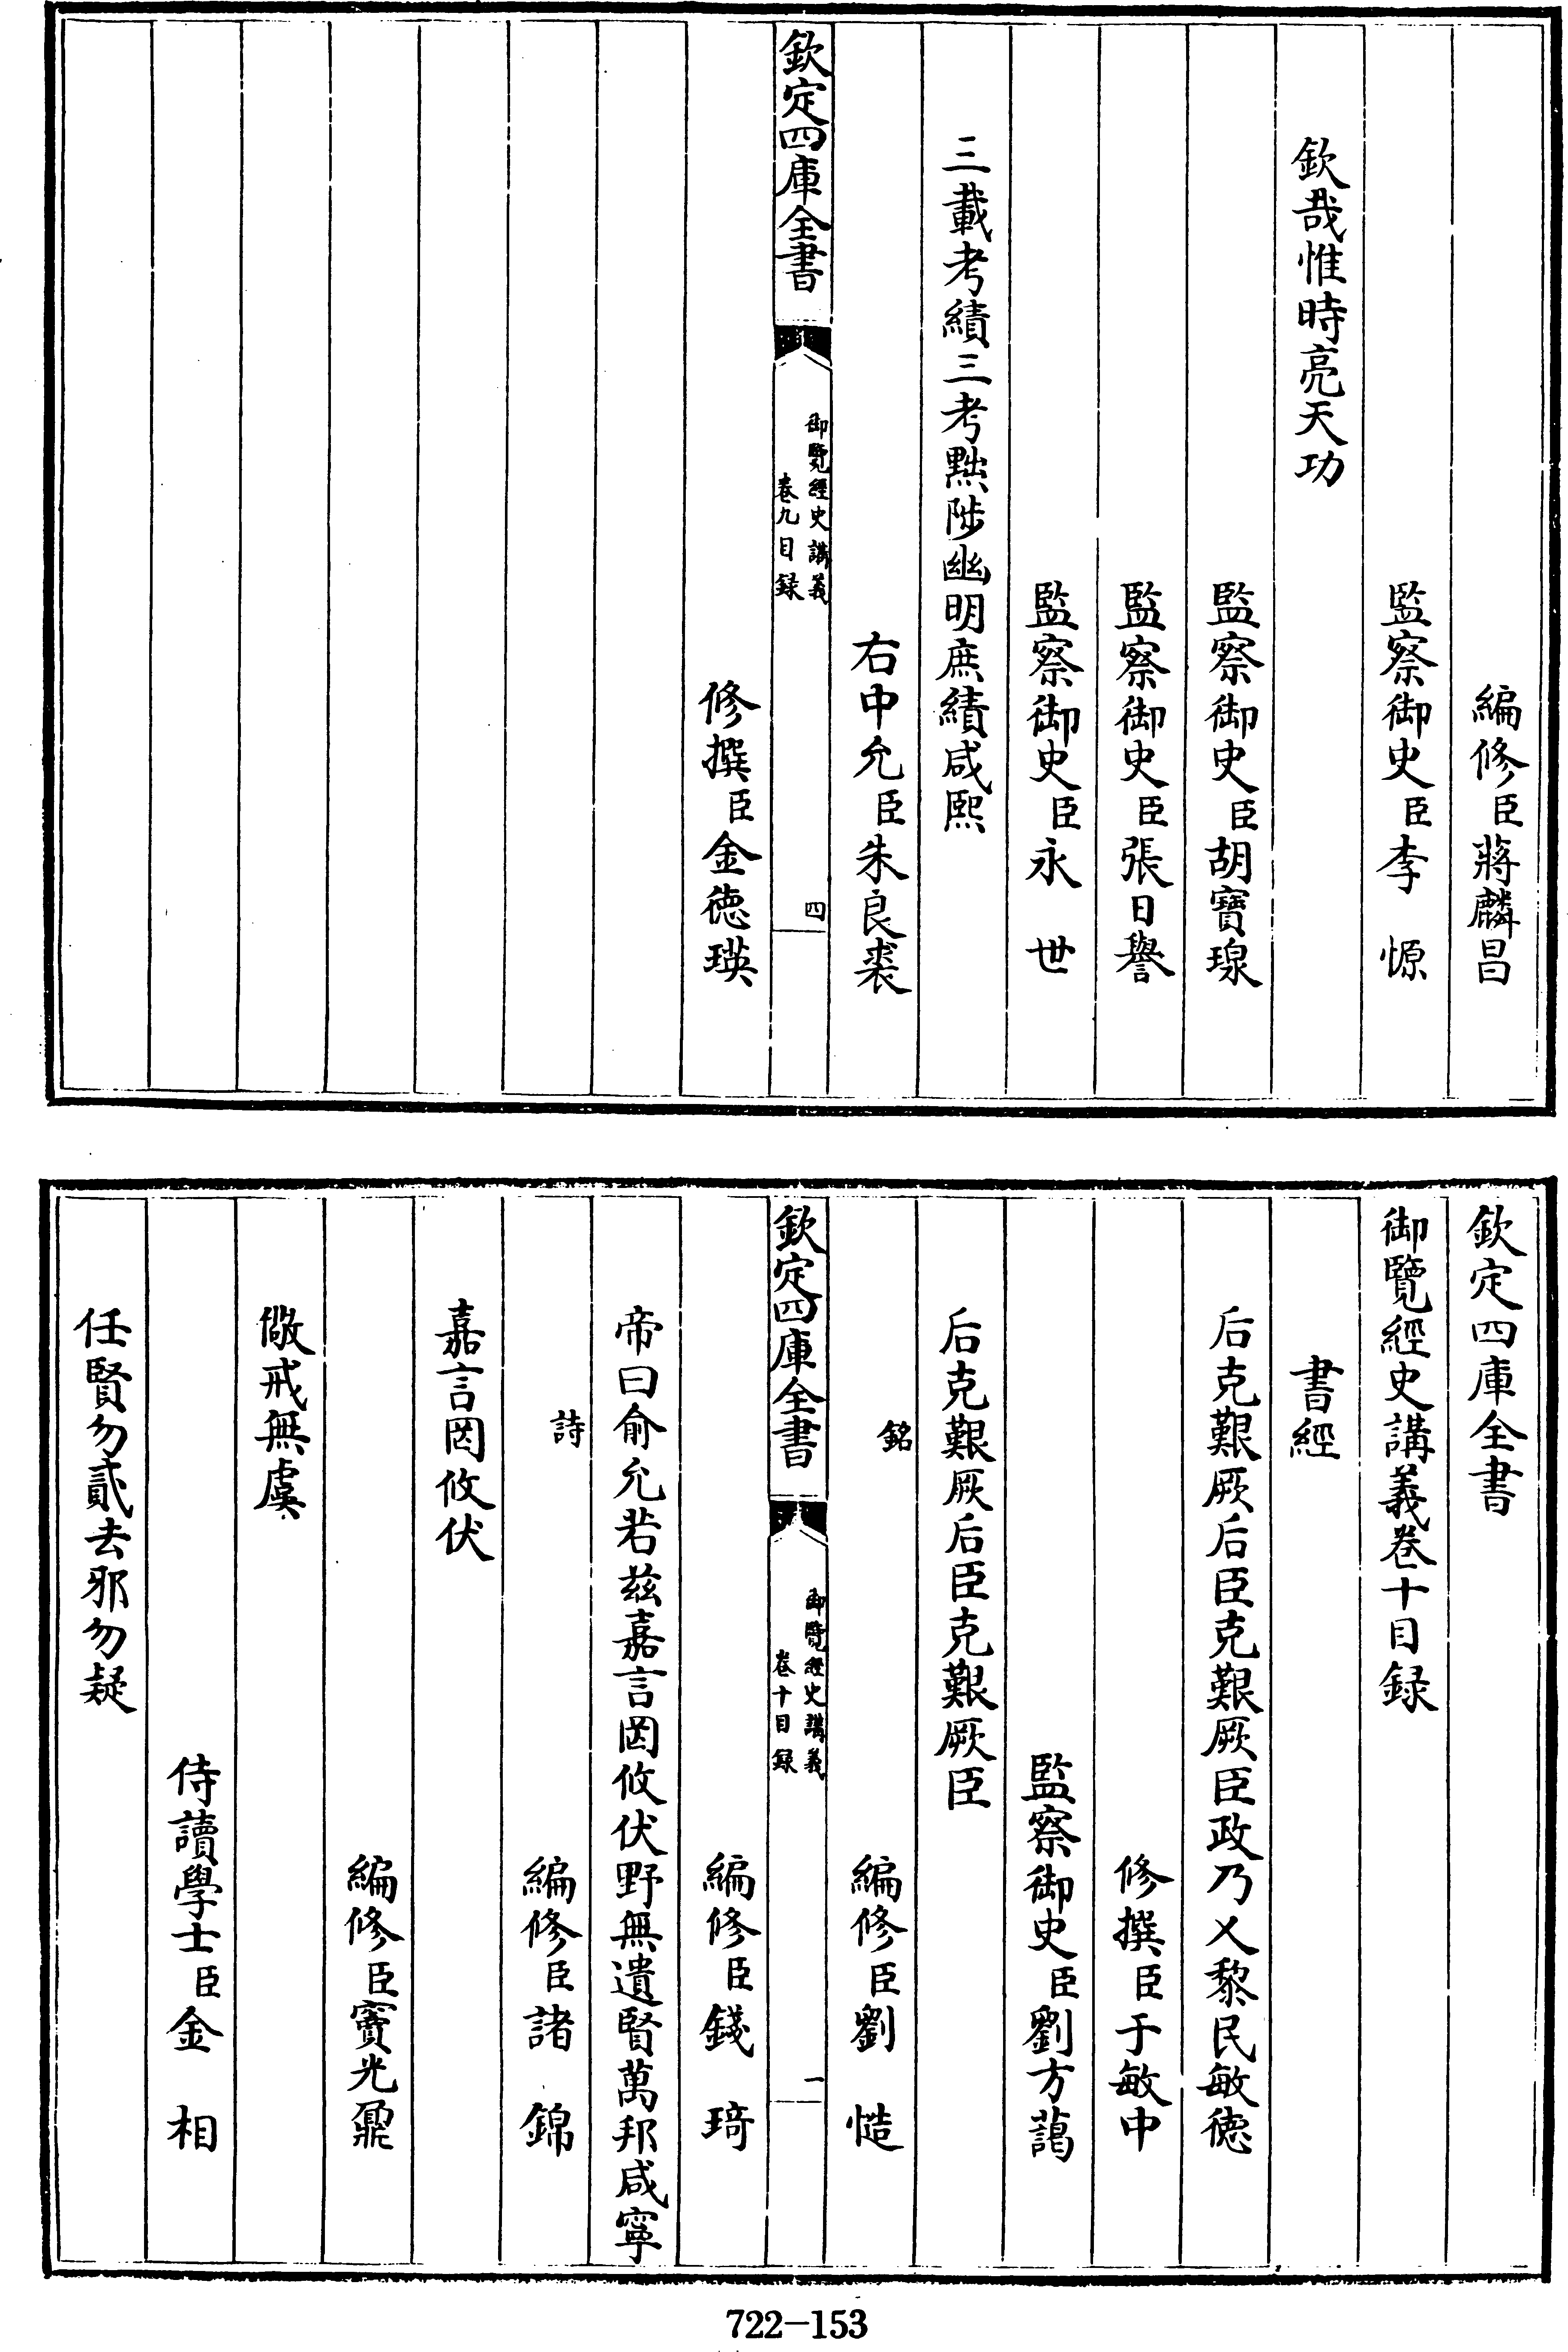 編修臣蔣麟昌
監察御史臣李　愿
欽哉惟時亮天功
監察御史臣胡寶瑔
監察御史臣張日譽
監察御史臣永　世
三載考績三考黜陟幽明庶績咸熙
右中允臣朱良裘
欽定四庫全書
御覽經史講義
卷九目録
四
修撰臣金徳瑛
欽定四庫全書
御覽經史講義卷十目録
書經
后克艱厥后臣克艱厥臣政乃乂黎民敏徳
修撰臣于敏中
監察御史臣劉方藹
后克艱厥后臣克艱厥臣
銘
編修臣劉　慥
欽定四庫全書
御覽經史講義
卷十目録
一
編修臣錢　琦
帝曰俞允若兹嘉言罔攸伏野無遺賢萬邦咸寧
詩
編修臣諸　錦
嘉言罔攸伏
編修臣竇光鼐
儆戒無虞
侍讀學士臣金　相
任賢勿貳去邪勿疑
722-153